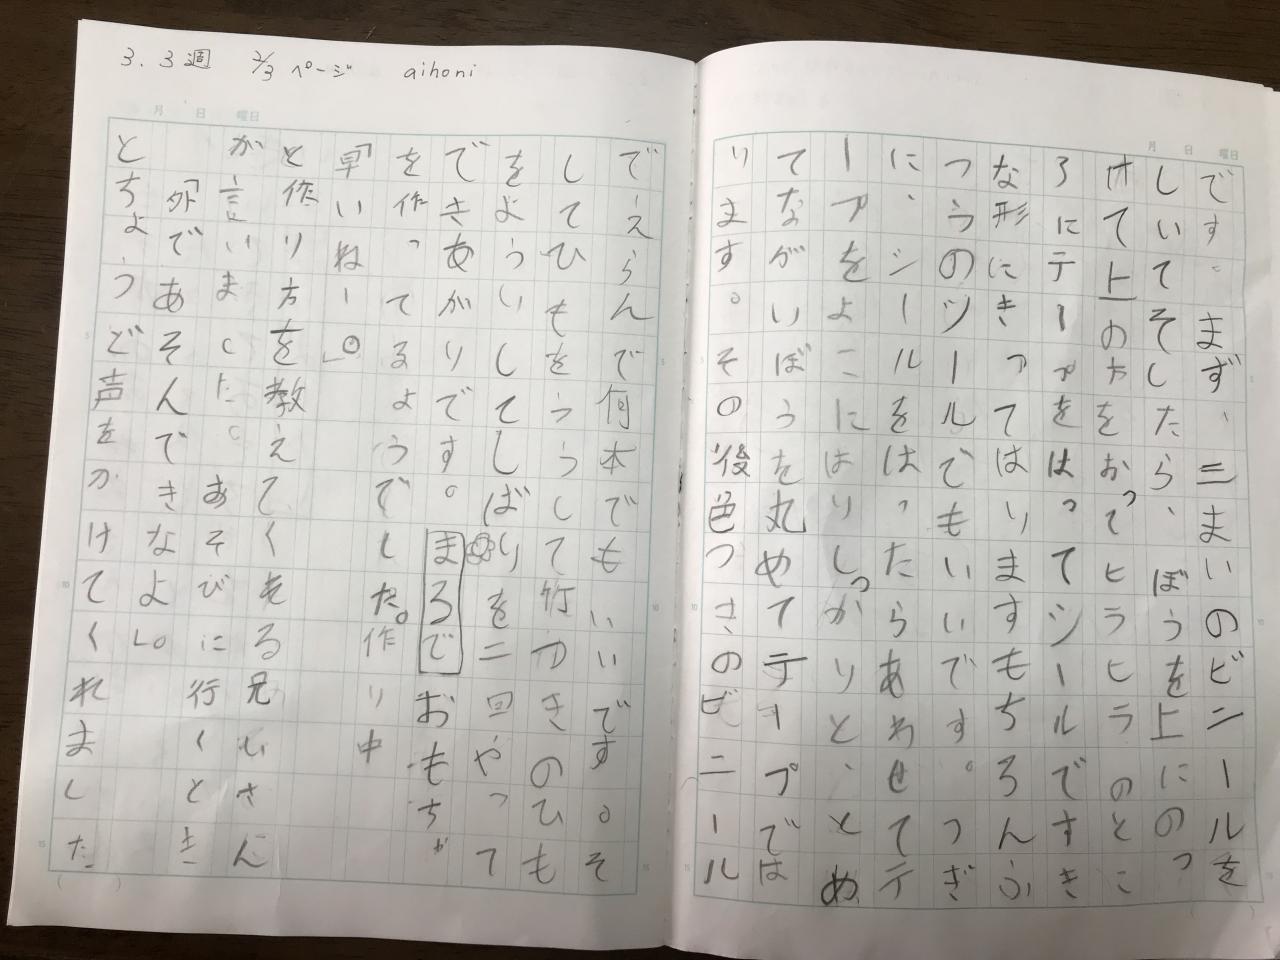 3.3週 2/3ページ aihoni
月 日 曜日
です。まず、二まいのビニールを
しいてそしたら、ぼうを上にのっ
けて上のかたをおってヒラヒラのとこ
ろにテープをはってシールですき
な形にきってはりますもちろんふ
つうのツールでもいいです。つぎ
に、シールをはったらあわせてテ
ープをよこにはりしっかりと、とめ
てながいぼうを丸めてテープでは
ります。その後色つきのビニール
月 日 曜日
でえらんで何本でもいいです。そ
してひもをうらしにして竹かきのひも
をよういしてしばりを二回やって
できあがりです。まるでおもちゃ
を作ってるようでした。作り中
「早いねー。」
と作り方を教えてくれる兄いさん
が言いました。あそびに行くとき
「外であそんできなよ」。
とちょうど声をかけてくれました